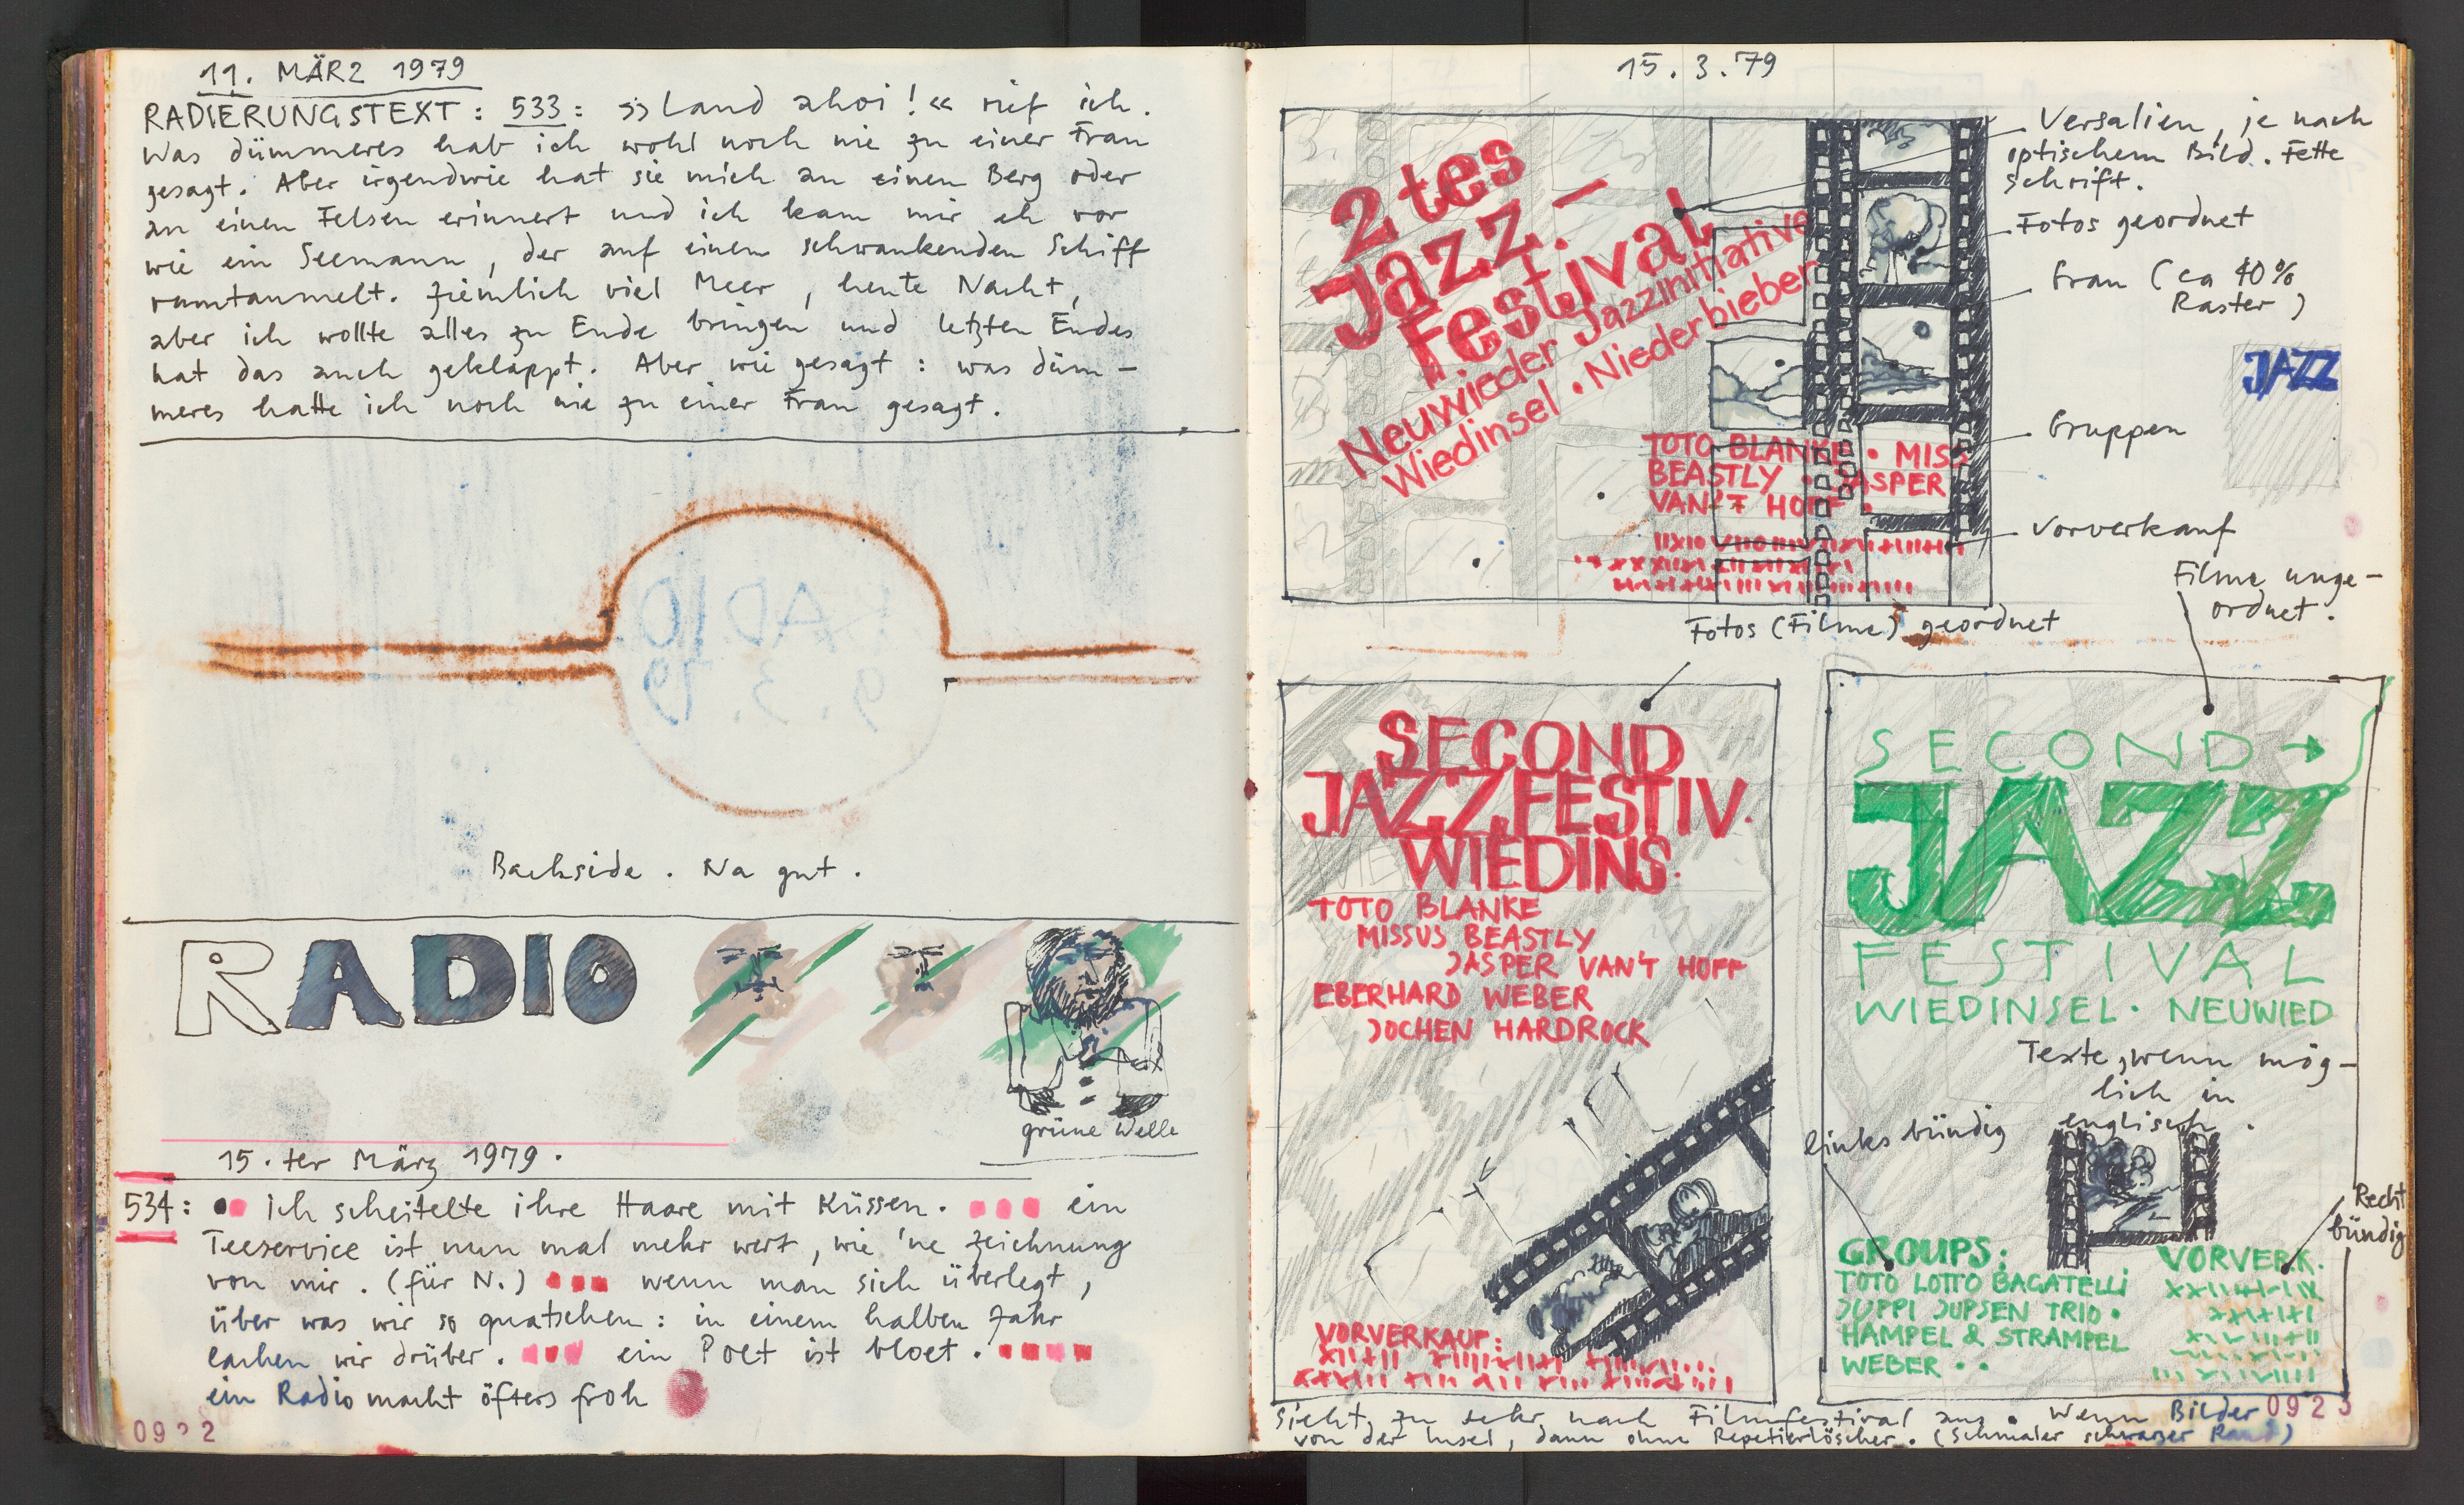 11. MÄRZ 1979
RADIERUNGSTEXT: 533: »Land ahoi!« rief ich.
Was dümmeres hab ich wohl noch nie zu einer Frau
gesagt. Aber irgendwie hat sie mich an einen Berg oder
an einen Felsen erinnert und ich kam mir eh vor
wie ein Seemann, der auf einem schwankenden Schiff
rumtaumelt. Ziemlich viel Meer, heute Nacht,
aber ich wollte alles zu Ende bringen und letzten Endes
hat das auch geklappt. Aber wie gesagt: was düm-
meres hatte ich noch nie zu einer Frau gesagt.
RADIO
9.3.79
Backside. Na gut.
RADIO
grüne Welle
15.ter März 1979.
534: Ich scheitelte ihre Haare mit Küssen. ein
Teeservice ist nun mal mehr wert, wie 'ne Zeichnung
von mir. (für N.) wenn man sich überlegt,
über was wir so quatschen: in einem halben Jahr
lachen wir drüber. ein Poet ist bloet.
ein Radio macht öfters froh
0922
15.3.79
2tes
Jazz-
Festival
Neuwieder Jazzinitiative
Wiedinsel • Niederbieber
TOTO BLANKE • MISS
BEASTLY • JASPER
VAN'T HOFF •
Versalien, je nach
optischem Bild. Fette
Schrift.
Fotos geordnet
Grau (ca 40%
Raster)
JAZZ
Gruppen
Vorverkauf
Fotos (Filme) geordnet
Filme unge-
ordnet.
SECOND
JAZZFESTIV.
WIEDINS.
TOTO BLANKE
MISSUS BEASTLY
JASPER VAN'T HOFF
EBERHARD WEBER
JOCHEN HARDROCK
VORVERKAUF:
SECOND
JAZZ
FESTIVAL
WIEDINSEL • NEUWIED
Texte, wenn mög-
lich in
englisch.
linksbündig
Recht
bündig
GROUPS:
TOTO LOTTO BAGATELLI
JUPPI JUPSEN TRIO •
HAMPEL & STRAMPEL
WEBER • •
VORVERK.
Sieht zu sehr nach Filmfestival aus. Wenn Bilder
von der Insel, dann ohne Repetierlöscher. (Schmaler schwarzer Rand)
0923